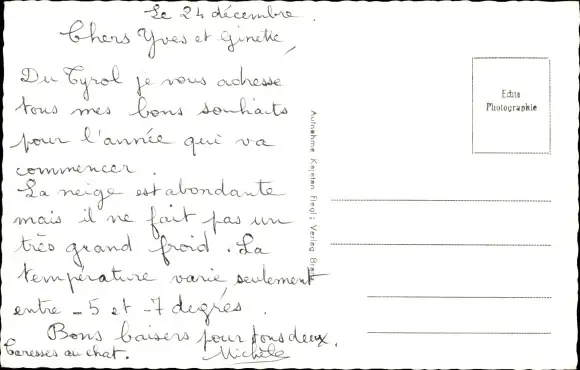 Le 24 décembre.
Chers Yves et Ginette,
Du Tyrol je vous adresse
tous mes bons souhaits
pour l'année qui va
commencer.
La neige est abondante
mais il ne fait pas un
très grand froid. La
température varie seulement
entre -5 et -7 degrés.
Bons baisers pour tous deux.
Caresses au chat. Michèle
Aufnahme Kajetan Fiegl; Verlag
Echte
Photographie